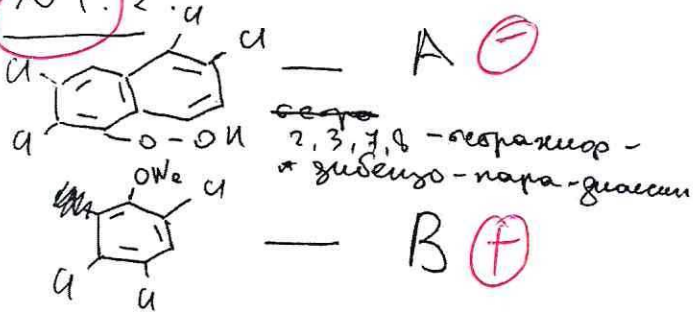 №1.2.
Cl
Cl
Cl — A (−)
Cl
O – OH
2, 3, 7, 8 – тетрахлор –
* дибензо – пара – диоксин
ONa
Cl
— B (+)
Cl
Cl